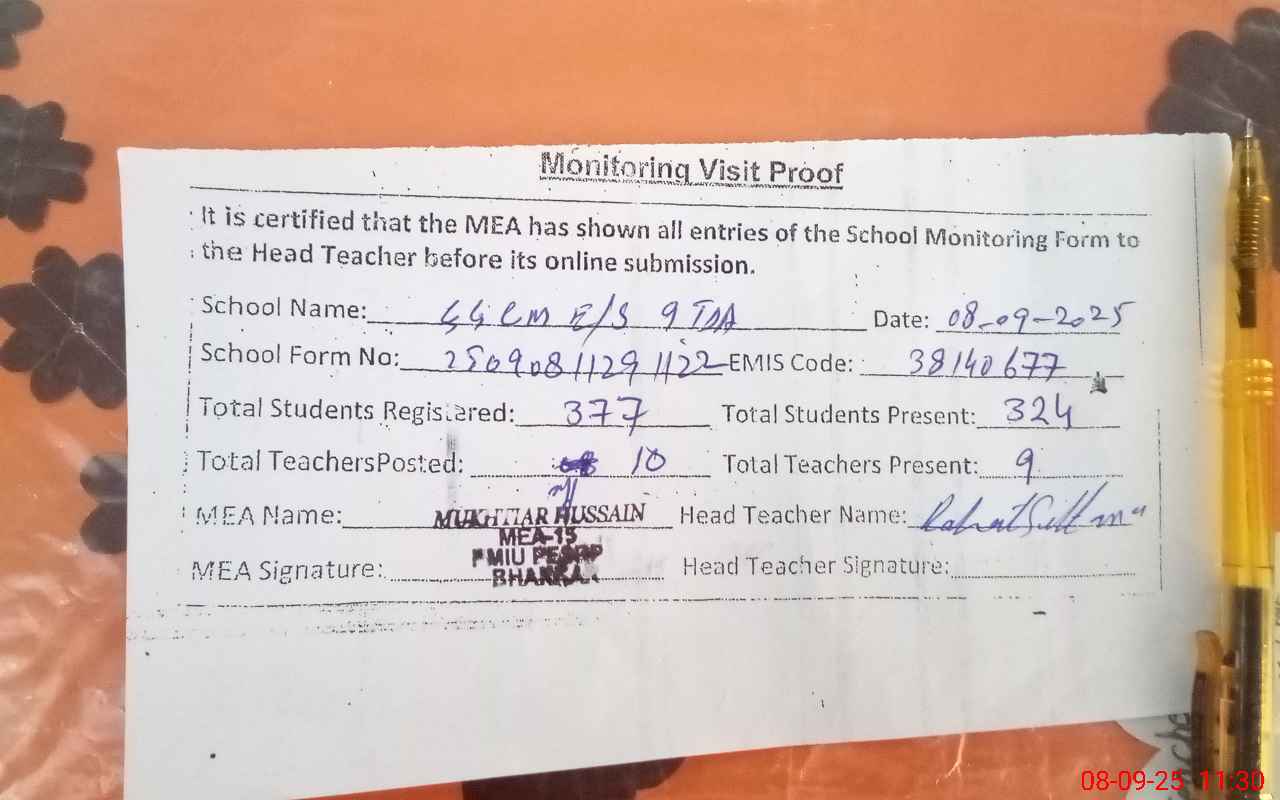 Monitoring Visit Proof
It is certified that the MEA has shown all entries of the School Monitoring Form to
the Head Teacher before its online submission.
School Name: GGCM E/S 9 TDA Date: 08-09-2025
School Form No: 25090811291122 EMIS Code: 38140677
Total Students Registered: 377 Total Students Present: 324
Total TeachersPosted: 10 Total Teachers Present: 9
MEA Name: MUKHTIAR HUSSAIN Head Teacher Name:
MEA-15
PMIU
MEA Signature: Head Teacher Signature:
08-09-25 11:30